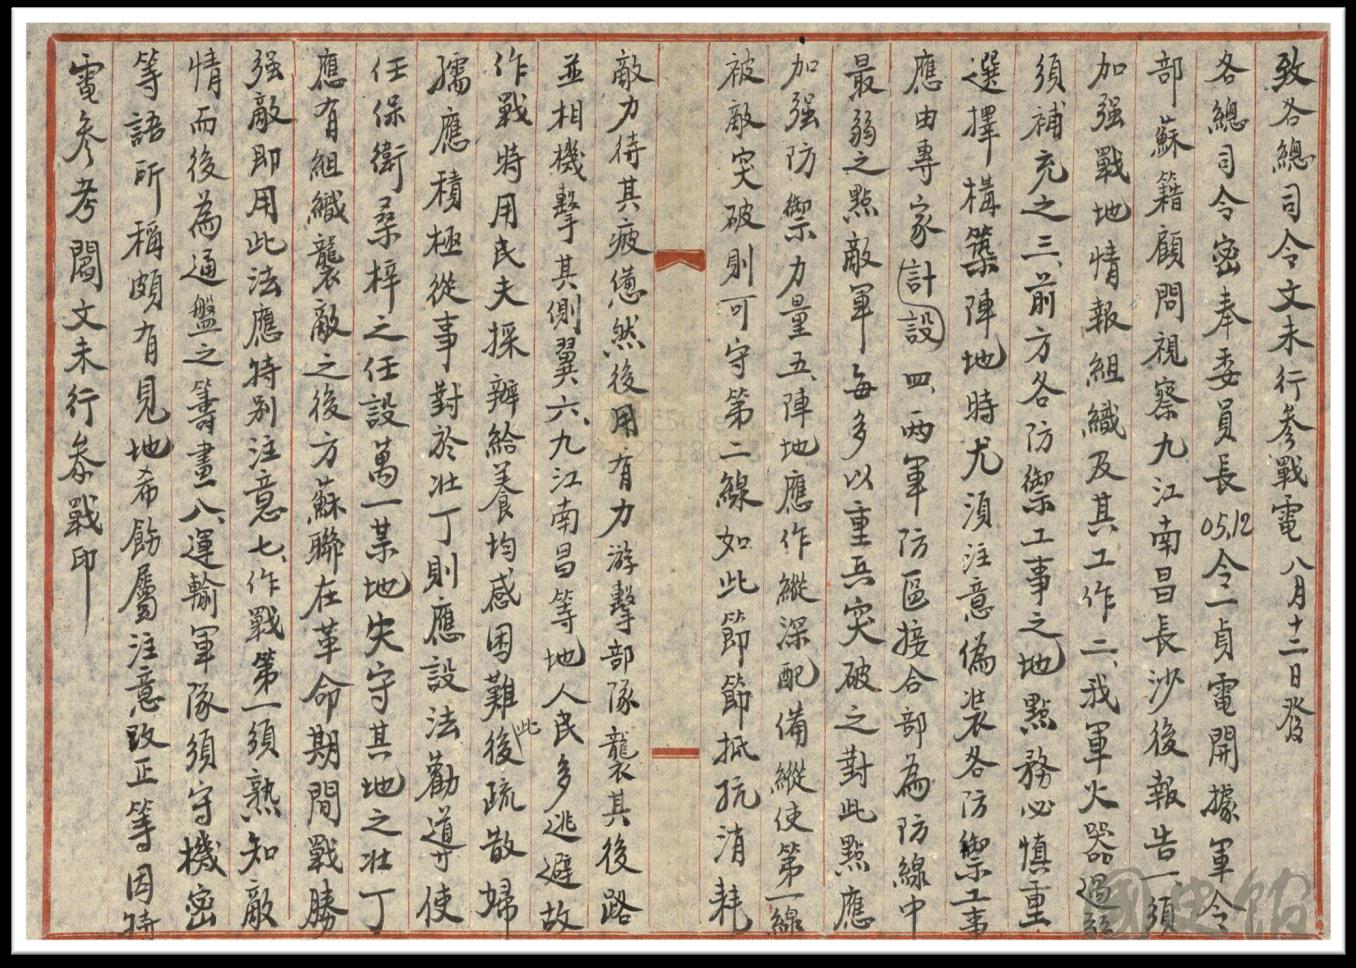 致各總司令文未行參戰電八月十二日發
各總司令密奉委員長05.12令一貞電開據軍令
部蘇籍顧問視察九江南昌長沙後報告一須
加强戰地情報組織及其工作二、我軍火器過弱
須補充之三、前方各防禦工事之地點務必慎重
選擇構築陣地時尤須注意偽裝各防禦工事
應由專家設計四、两軍防區接合部為防線中
最弱之點敵軍每多以重兵突破之對此點應
加强防禦力量五、陣地應作縱深配備縱使第一線
被敵突破則可守第二線如此節節抵抗消耗
敵力待其疲憊然後用有力游擊部隊襲其後路
並相機擊其側翼六、九江南昌等地人民多逃避故
作戰時用民夫採辦給養均感困難此後疏散婦
孺應積極從事對於壯丁則應設法勸導使
任保衛桑梓之任設萬一某地失守其地之壯丁
應有組織襲敵之後方蘇聯在革命期間戰勝
强敵即用此法應特别注意七、作戰第一須熟知敵
情而後為通盤之籌畫八、運輸軍隊須守機密
等語所稱頗有見地希飭屬注意改正等因特
電參考閻文未行參戰印
國史館